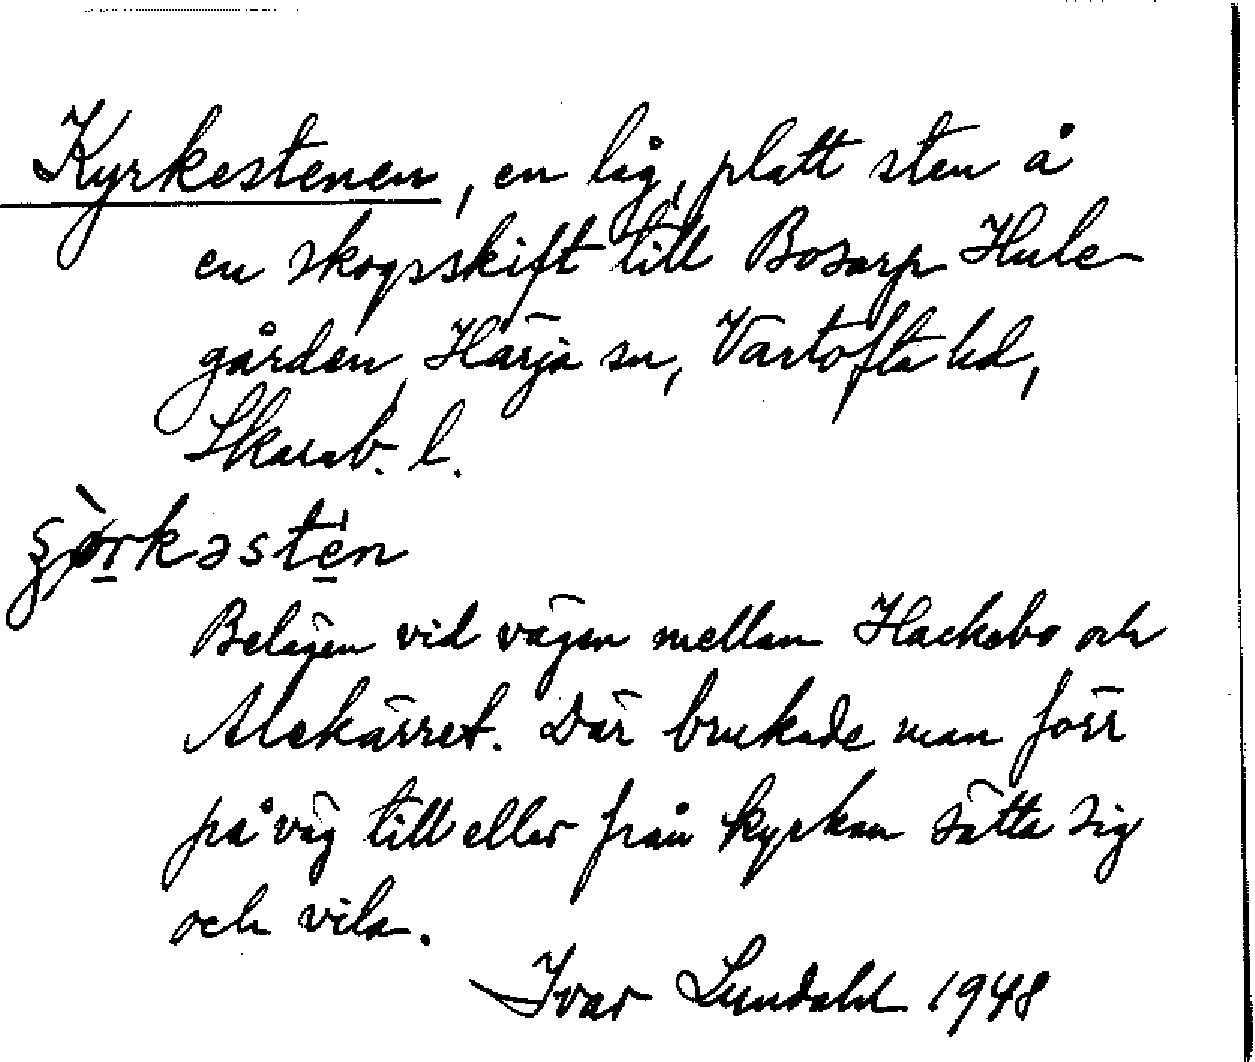 Kyrkestenen, en låg, platt sten å
en skogsskift till Bosarp Hule-
gården, Härja sn, Vartofta hd,
Skarab. l.
Belägen vid vägen mellan Hackebo och
Alekärret. Där brukade man förr
på väg till eller från kyrkan sätta sig
och vila.
Ivar Lundahl 1948